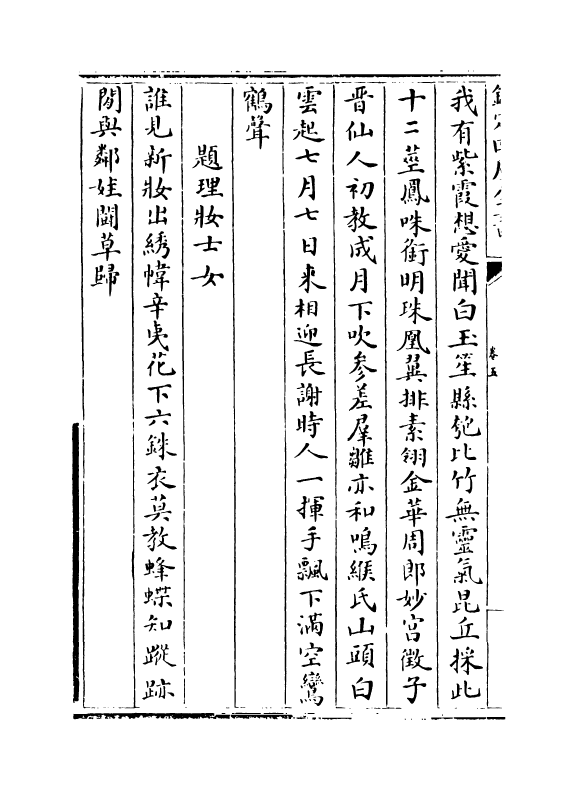 我有紫霞想愛聞白玉笙縣匏比竹無靈氣昆丘採此
十二莖鳳咮銜明珠凰翼排素翎金華周郎妙宮徵子
晋仙人初教成月下吹參差羣雛亦和鳴緱氏山頭白
雲起七月七日来相迎長謝時人一揮手飄下滿空鸞
鶴聲
題理妝士女
誰見新妝出綉幃辛夷花下六銖衣莫教蜂蝶知蹤跡
閒與鄰娃鬬草歸
卷五